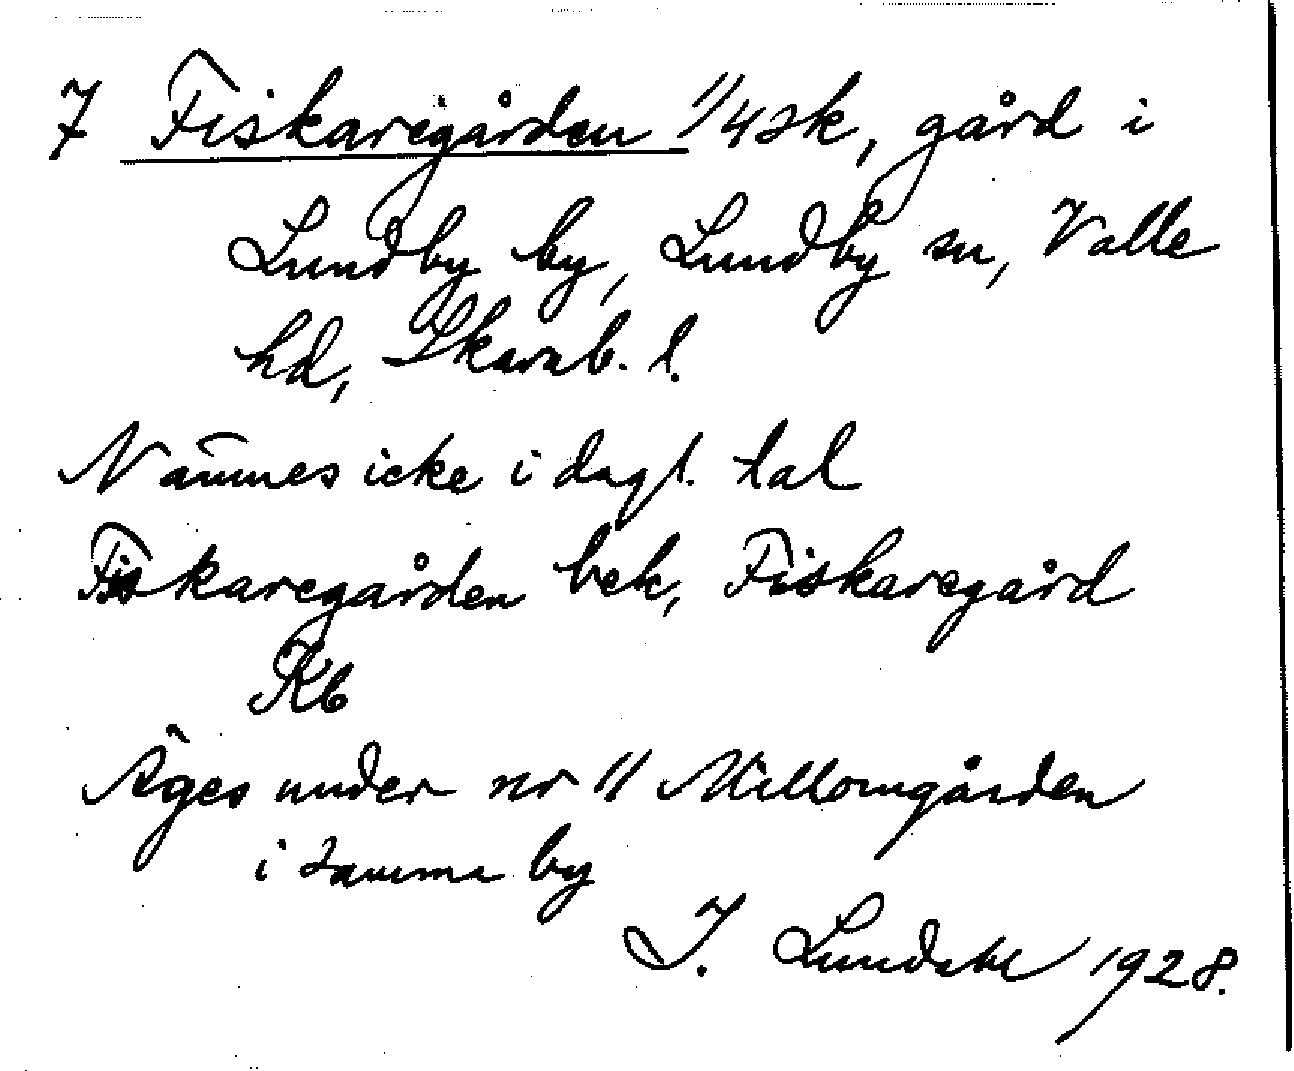 7 Fiskaregården 1/4 sk, gård i
Lundby by, Lundby sn, Valle
hd, Skarab. l.
Nämnes icke i dagl. tal
Fiskaregården bek, Fiskaregård
Kb
Äges under nr 11 Mellomgården
i samma by
I. Lundahl 1928.